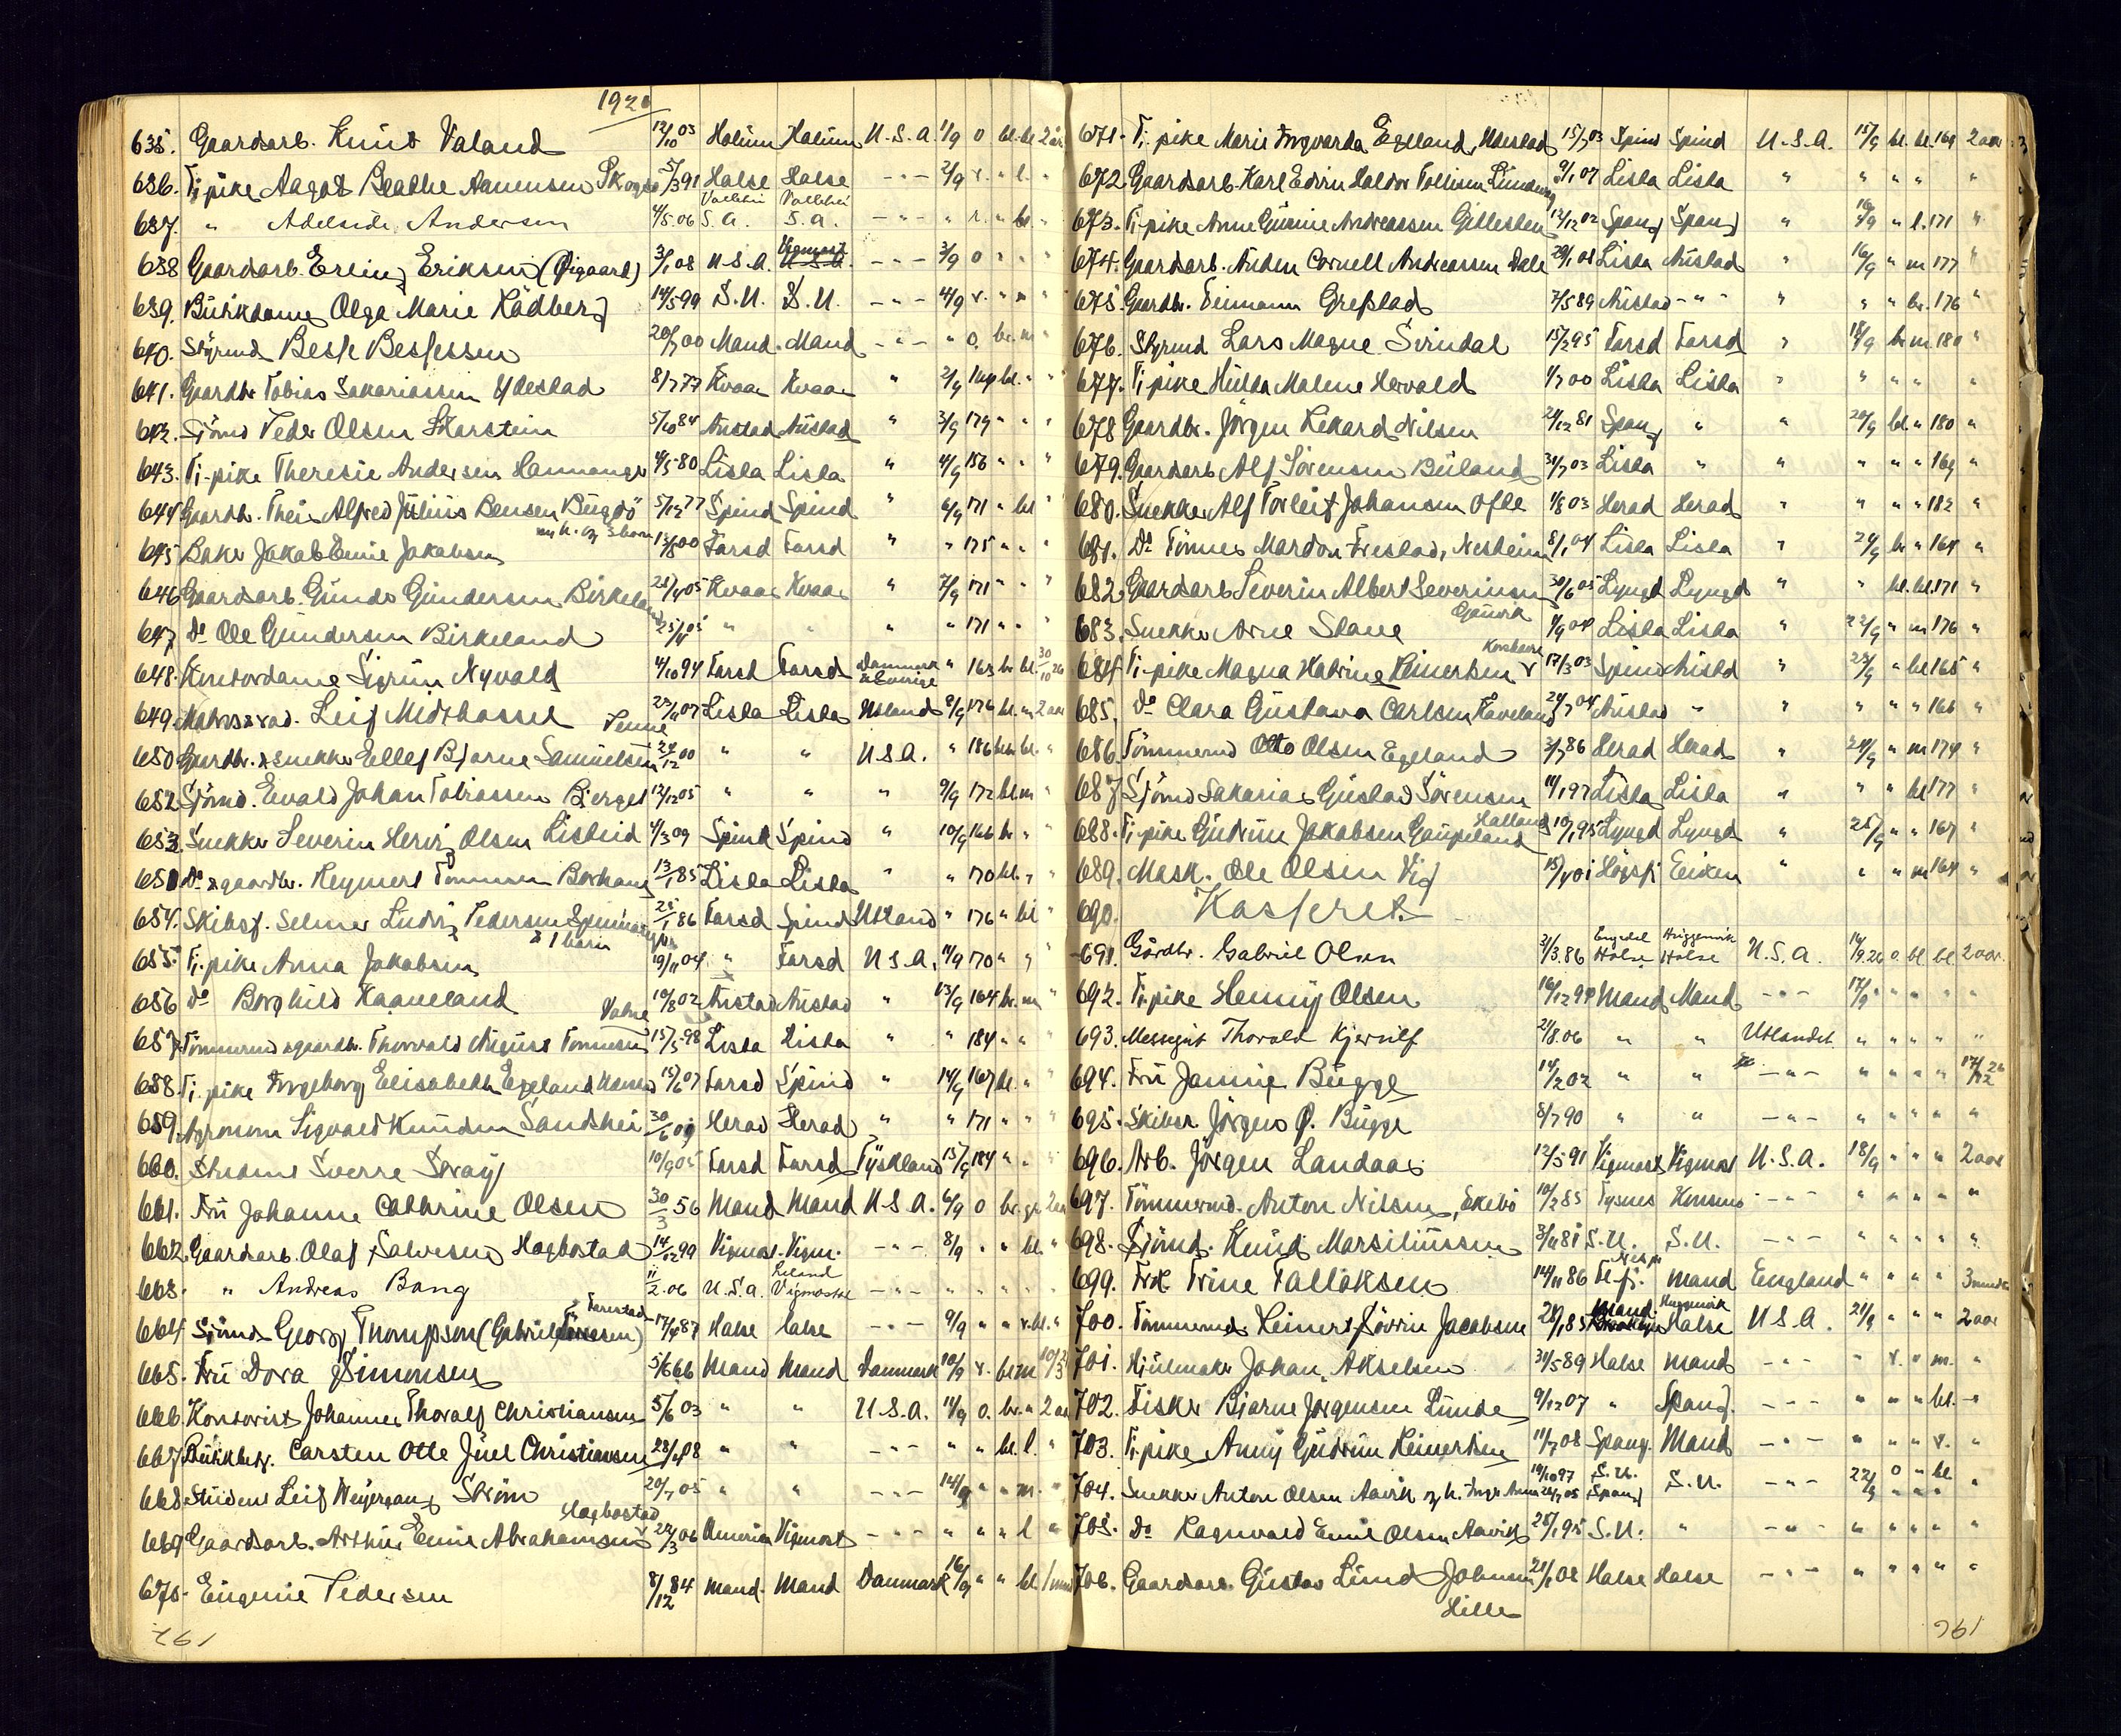 1926
635. Gaardsarb. Knut Valand 12/10 03 Holum Holum U.S.A. 1/9 0 bl. bl. 2 aar
636. Tj.pike Aagot Beathe Aanensen Skogsø 5/3 91 Halse Halse - " - 2/9 v. " l. "
637. " Adelseide Andersen 4/5.06 S.A. S.A. - " - " r. " bl. "
638 Gaardsarb. Erling Eriksen (Øigaard) 3/1 08 U.S.A. Vigmost. U.S.A. - " - 3/9 0 " " "
639. Butikdame Olga Marie Rådberg 14/5 99 S.U. S.U. - " - 4/9 v. " m "
640. Styrmd Besse Bessesen 20/7 00 Mand. Mand - " - " 0. br. m "
641. Gaardbr. Tobias Sakariassen Ydestad 8/7 77 Kvaas Kvaas " 2/9 bl. " "
642. Sjömd Peder Olsen Skarstein 5/10 84 Austad Austad " 3/9 179 " " "
643. Tj-pike Theresie Andersen Hananger 4/5 80 Lista Lista " 4/9 156 " " "
644 Gaardbr. Theis Alfred Julius Bensen Bugdö 5/12 77 Spind Spind " 6/9 171 " bl "
m h. og 3 barn
645 Baker Jakob Emil Jakobsen 00 Farsd Farsd " " 175 " " "
646 Gaardsarb. Gundo Gundersen Birkeland 28/4 05 Kvaas Kvaas " 7/9 171 " " "
647. Do Ole Gundersen Birkeland 25/11 05 " " " " 171 " "
648. Kontordame Sigrun Nyvold 4/10 94 Farsd Farsd Danmark & Sverige " 163 br bl. 30/10 26
649. Matros & rad. Leif Midthassel 23/11 07 Lista Lista Utland 8/9 176 bl. m 2 aar
Penne
650 Gaardbr. & snekker Ellef Bjarne Samuelsen 24/12 00 " " U.S.A. " 186 bl. "
652 Sjömd. Evald Johan Tobiassen Bjerget 12/12 05 " " " 9/9 172 bl. m "
653 Snekker Severin Herig Olsen Listeid 4/3 09 Spind Spind " 10/9 166 br " "
651 Do & gaardbr. Reymert Tönnesen Borhaug 13/1 85 Lista Lista " " 170 bl. " "
654. Skibsf. Selmer Ludvig Pedersen 25/1 86 Farsd Spind Utland " 176 " bl "
& 1 barn
655. Tj.pike Anna Jakobsen 19/11 04 " Farsd U.S.A. 11/9 170 " " "
656 do Borghild Haaneland 10/8 02 Austad Austad " 13/9 164 br. m "
657 Tömmermd & gaardbr. Thorvald August Tönnesen 15/5 98 Lista Lista " " 184 " " "
658. Tj. pike Ingeborg Elisabeth Egeland 15/6 07 Farsd Spind " 14/9 167 bl. " "
659. Agronom Sigvald Knudsen Sandhei 30/6 09 Herad Herad " " 171 " " "
660. Student Sverre Svaij 10/9 05 Farsd Farsd Tyskland 15/9 184 " " "
661. Fru Johanne Cathrine Olsen 30/3 56 Mand Mand U.S.A. 6/9 0 br. gr. 2 aar
662. Gaardsarb. Olaf Salvesen Hogbostad 14/12 99 Vigmost. Vigm. - " - 8/9 " " bl. "
663. " Andreas Bang 11/2.06 U.S.A. Leland Vigmostad - " - " " " " "
664. Sjömd Georg Thompson (Gabriel Tönnesen) 17/4 87 Halse Halse - " - 9/9 " " v.bl. "
665. Fru Dora Simonsen 5/6 66 Mand Mand Danmark 10/9 v. br m
666. Kontorist Johannes Thoralf Christiansen 5/6 03 " " U.S.A. 11/9 0. br. " 2 aar
667 Butikbetj. Carsten Otto Juel Christiansen 28/4 08 " " - " - " " bl. l. "
668 Student Leif Weyergang Ström 20/7 05 " " - " - 14/9 " " m. "
Hogbostad
669 Gaardsarb. Arthur Emil Abrahamsen 22/3 06 America Vigmost - " - " " " l "
670. Eugenie Pedersen 8/12 84 Mand. Mand Danmark 16/9 " " bl. 1 mnd
261
671. Tj. pike Marie Ingvarda Egeland, Udestad 15/7 03 Spind Spind U.S.A. 15/9 bl. bl. 169 2 aar
672 Gaardsarb. Karl Edvin Haldor Tollisen Lundevaag 9/1 07 Lista Lista " " " " " "
673. Tj-pike Anne Gurine Andreassen Gitlesten 12/12 02 Spang Spang " 16/9 " l. 171 "
674. Gaardsarb. Auden Cornell Andreassen Dale 29/1 08 Lista Austad " 16/9 " m 177 "
675. Gaardbr. Teimann Grefstad 7/5 89 Austad - " - " " " br. 176 "
676. Styrmd Lars Magne Sirindal 15/2 95 Farsd Farsd " 18/9 br m 180 "
677. Tj.pike Hulda Malene Hervold 4/7 00 Lista Lista " " " " "
678 Gaardbr. Jörgen Rekard Nilsen 24/12 81 Spang " " 20/9 bl. " 180 "
679. Gaardsarb Alf Sörensen Buland 31/7 03 Lista " " " " " 169 "
680. Snekker Alf Torleif Johansen Ofte 1/8 03 Herad Herad " " " " 182 "
681. Do Tönnes Mardon Frestad, Nesheim 8/1 04 Lista Lista " 21/9 br " 164 "
682. Gaardsarb Severin Albert Severinsen 30/6 05 Lyngd Lyngd " " bl. bl. 171 "
683. Snekker Arne Stave 9/9 04 Lista Lista " 22/9 " m 176 "
684. Tj-pike Magna Katrine Reinertsen 17/3 03 Spind Austad " 23/9 " bl 165 "
685. do Clara Gustava Carlsen Haveland 24/7 04 Austad " " " " " 166 "
686. Tömmermd Otto Olsen Egeland 2/7 86 Herad Herad " 24/9 " m 174 "
687 Sjömd Sakarias Gustad Sörensen 11/1 97 Lista Lista " " " bl 177 "
688. Tj-pike Gudrun Jakobsen Gaupeland 10/1 95 Lyngd Lyngd " 25/9 " " 167 "
689. Mask. Ole Olsen Vig 15/4 01 Högsfj Eiken " " " m 164 "
690. Kasseret
691. Gårdbr. Gabriel Olsen 2/3.86 Halse Halse U.S.A. 14/9.26 0 bl. bl. 2 aar.
692. Tj.pike Henny Olsen 16/12 99 Mand Mand - " - 17/9 " " " "
693. Messegut Thorald Kjerulf 2/8.06 " " Utlandet " " " " "
694. Fru Jannie Bugge 14/2 02 " " - " - " " " " 17/12 26
695. Skibsr. Jörgen Ø. Bugge 8/7 90 " " - " - " " " " "
696. Arb. Jörgen Landaas 12/5 91 Vigmost Vigmost U.S.A. 18/9 " " " 2 aar
697. Tömmermd. Anton Nilsen, Ekebö 10/2 85 Tysnes Konsmo - " - " " " " "
698. Sjömd. Knud Marsiliussen 3/11 81 S.U. S.U. - " - " " " " "
699. Frk Trine Talloksen 14/11 86 Mand England " " " " 3 mndr
700. Tömmermd Reinert Sövrin Jacobsen 28/1 85 Mand. Halse U.S.A. 21/9 " " " 2 aar
701. Hjulmaker Johan Akselsen 31/5 89 Halse Mand - " - " v. " m. "
702. Fisker Bjarne Jörgensen Lunde 9/12 07 " Spang. - " - " " " bl. "
703. Tj.pike Anny Gudrun Reinertsen 11/7 08 Spang. Mand - " - " " " v. "
704. Snekker Anton Olsen Aavik og h. Inga Anna 19/10 97 S.U. Spang S.U. - " - 22/9 0 " bl "
705. do Ragnvald Emil Olsen Aavik 28/1 95 S.U. " - " - " " " " "
706. Gaardsarb. Gustav Lund Johnsen 21/1 08 Halse Halse - " - " " " " "
Hille
261